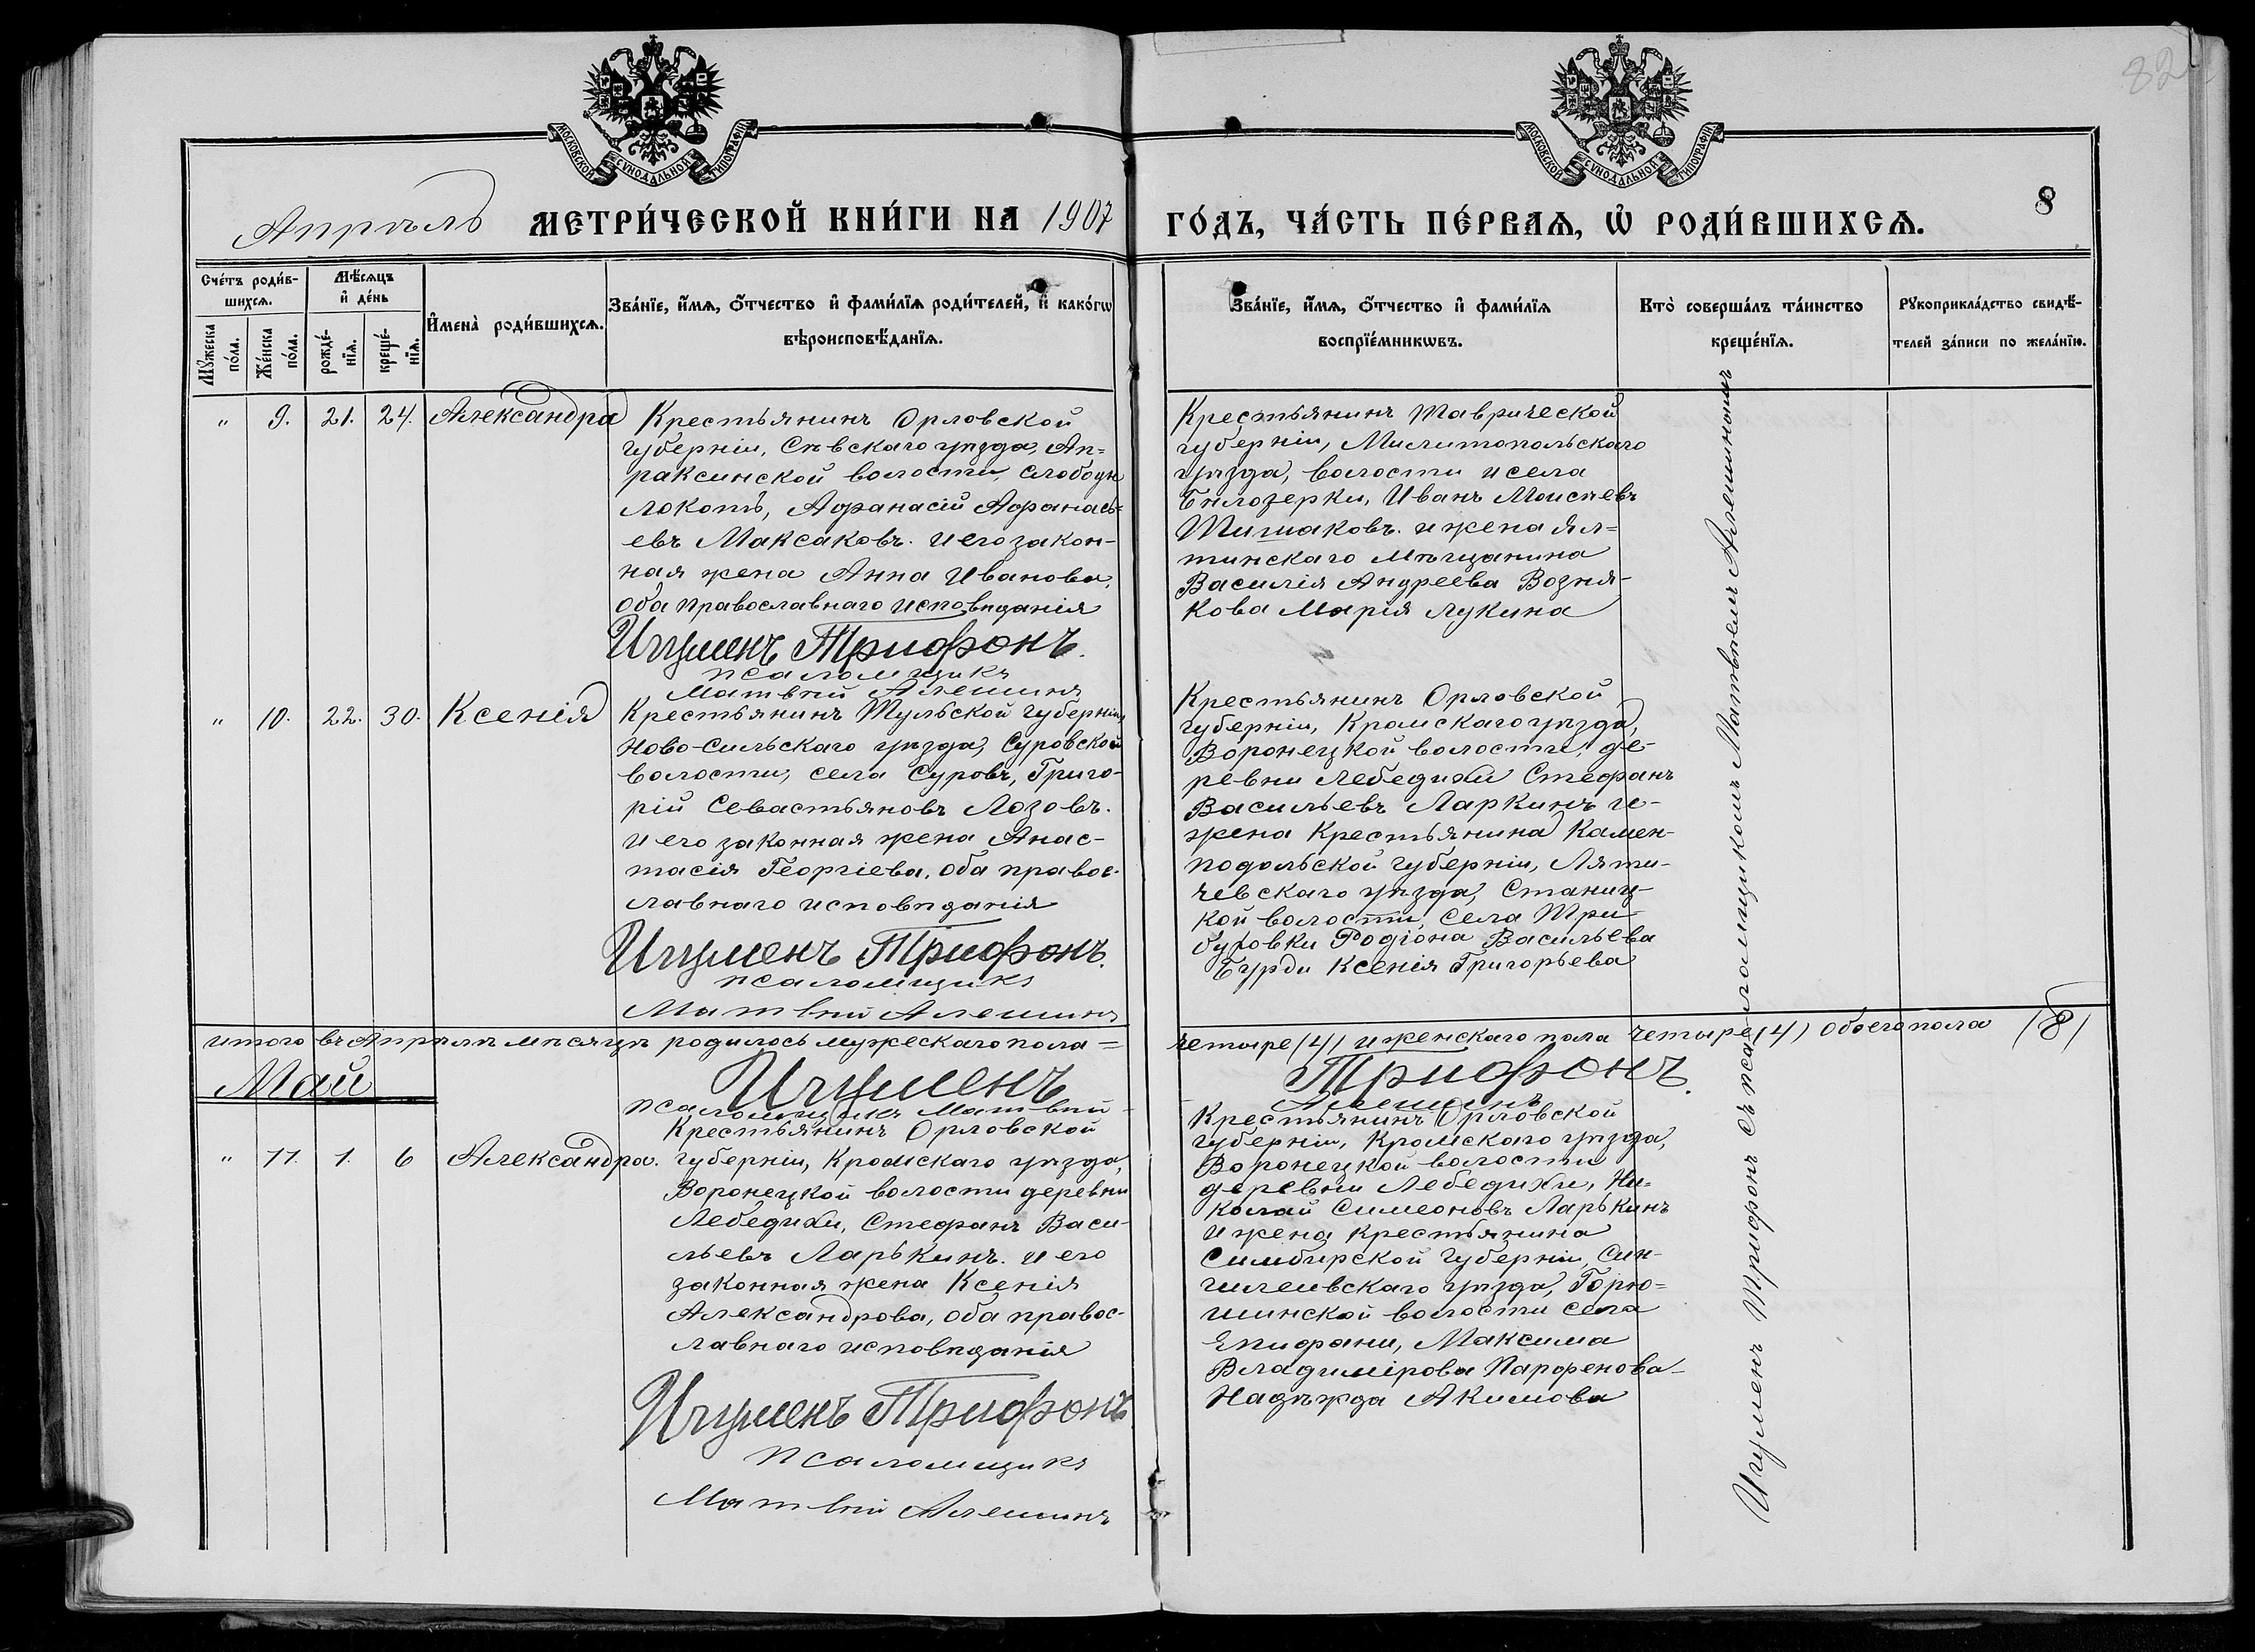 82
МОСКОВСКОЙ СѴНОДАЛЬНОЙ ТИПОГРАФІИ
МОСКОВСКОЙ СѴНОДАЛЬНОЙ ТИПОГРАФІИ
8
Апрѣль МЕТРИ́ЧЕСКОЙ КНИ́ГИ НА 1907 ГО́ДЪ, ЧА́СТЬ ПЕ́РВАѦ, Ѡ҆ РОДИ́ВШИХСѦ.
Сче́тъ роди́в-
шихсѧ.
Мꙋ́жеска
по́ла.
Же́нска
по́ла.
Мѣ́сѧцъ
и҆ де́нь
рожде́-
нїѧ.
креще́-
нїѧ.
И҆мена̀ роди́вшихсѧ.
Зва́нїе, и҆́мѧ, ѻ҆́тчество и҆ фами́лїѧ роди́телей, и҆ како́гѡ
вѣроисповѣ́данїѧ.
Зва́нїе, и҆́мѧ, ѻ҆́тчество и҆ фами́лїѧ
воспрїе́мникѡвъ.
Кто̀ соверша́лъ та́инство
креще́нїѧ.
Рꙋкоприкла́дство свидѣ́-
телей за́писи по жела́нїю.
" 9. 21. 24. Александра
Крестьянинъ Орловской
губерніи, Сѣвскаго уѣзда, Ап=
раксинской волости, слободы
Локоть, Афанасій Афанась=
евъ Максаковъ. и его закон-
ная жена Анна Иванова,
оба православнаго исповѣданія
Игуменъ Трифонъ.
псаломщикъ
Матвѣй Алешинъ
Крестьянинъ Таврической
губерніи, Мелитопольскаго
уѣзда, волости и села
Бѣлозерки, Иванъ Моисѣевъ
Тишаковъ. и жена Ял=
тинскаго мѣщанина
Василія Андреева Возня-
кова Марія Лукина
" 10. 22. 30. Ксенія
Крестьянинъ Тульской губерніи,
Ново-Сильскаго уѣзда, Суровской
волости, села Суровъ, Григо-
рій Севастьяновъ Лозовъ.
и его законная жена Анас-
тасія Георгіева, оба правос-
лавнаго исповѣданія
Игуменъ Трифонъ.
псаломщикъ
Матвѣй Алешинъ
Крестьянинъ Орловской
губерніи, Кромскаго уѣзда,
Воронецкой волости, де-
ревни Лебедихи Стефанъ
Васильевъ Ларкинъ и-
жена Крестьянина Камен-
подольской губерніи, Ляти-
чевскаго уѣзда, Станиц-
кой волости, села Три-
буховки Родіона Васильева
Бурди Ксенія Григорьева
итого въ Апрѣлѣ мѣсяцѣ родилось мужескаго пола = четыре (4) и женскаго пола четыре (4) обоего пола (8)
Игуменъ Трифонъ.
псаломщикъ Матвѣй Алешинъ
Май
" 11. 1. 6 Александра.
Крестьянинъ Орловской
губерніи, Кромскаго уѣзда,
Воронецкой волости деревни
Лебедихи, Стефанъ Васи-
льевъ Ларькинъ. и его
законная жена Ксенія
Александрова, оба правос-
лавнаго исповѣданія
Игуменъ Трифонъ
псаломщикъ
Матвѣй Алешинъ
Крестьянинъ Орловской
губерніи, Кромскаго уѣзда,
Воронецкой волости
деревни Лебедихи, Ни-
колай Симеоновъ Ларькинъ
и жена крестьянина
Симбирской губерніи, Син-
гилеивскаго уѣзда, Горю=
шинской волости села
Епифани, Максима
Владимірова Парфенова-
Надѣжда Акимова
Игуменъ Трифонъ съ псаломщикомъ Матвѣемъ Алешинымъ